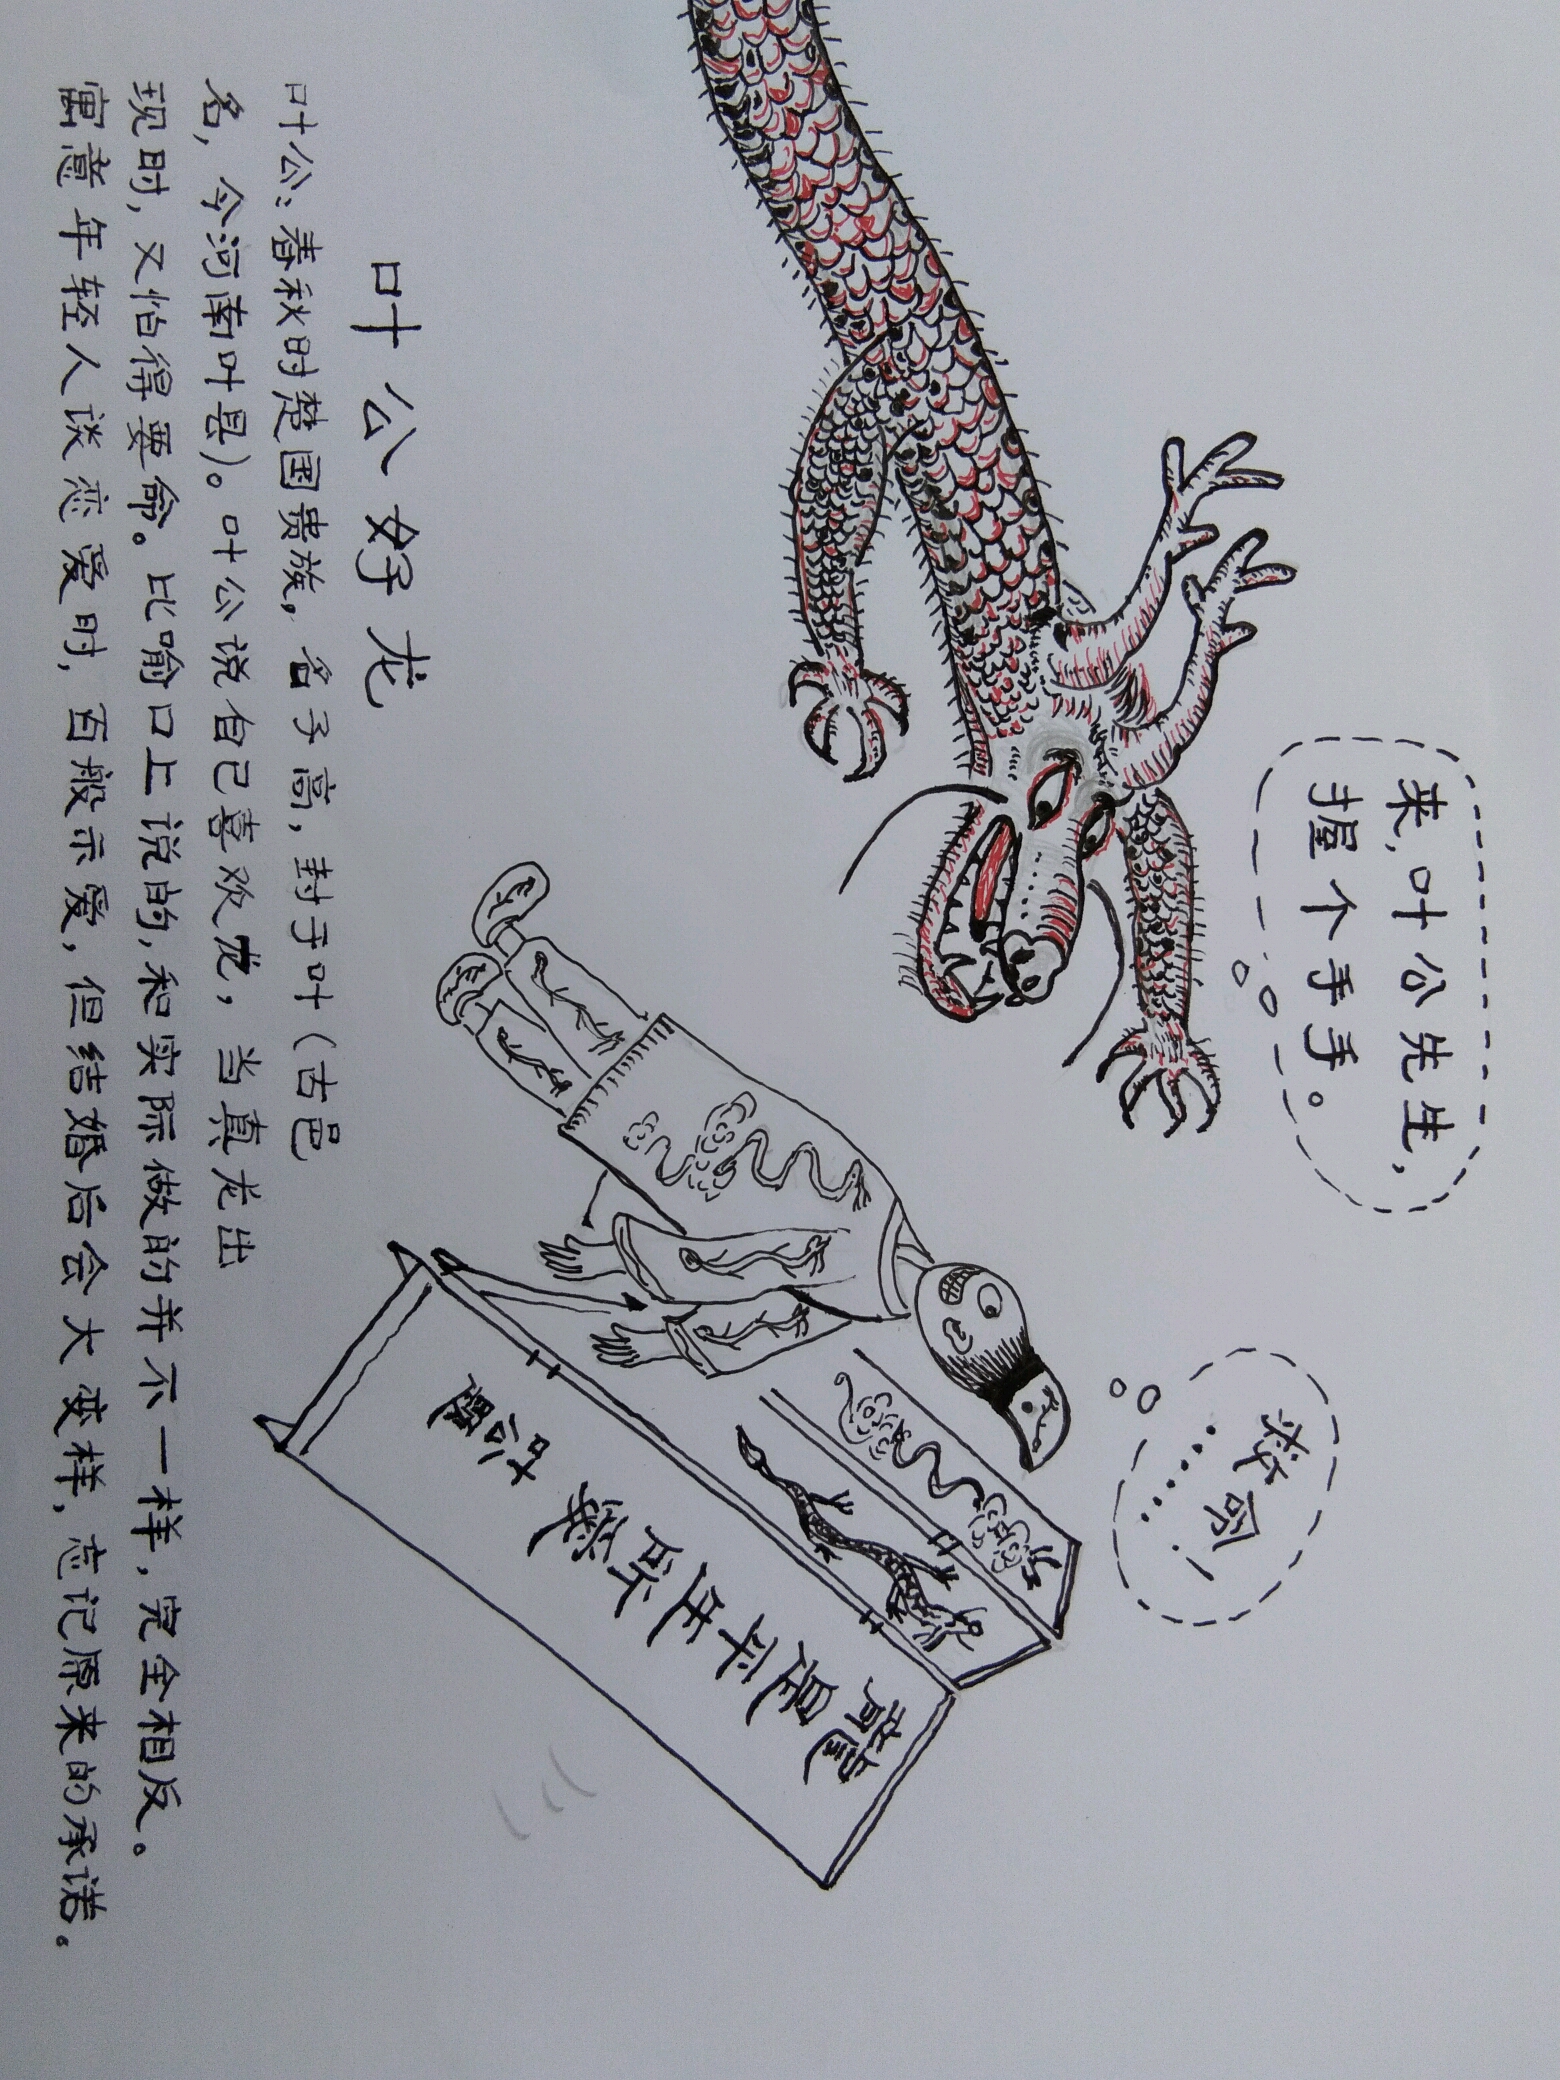 来,叶公先生,
握个手手。
救命!
……
龍是平生所爱 叶公題
叶公好龙
叶公:春秋时楚国贵族,名子高,封于叶(古邑
名,今河南叶县)。叶公说自己喜欢龙,当真龙出
现时,又怕得要命。比喻口上说的,和实际做的并不一样,完全相反。
寓意年轻人谈恋爱时,百般示爱,但结婚后会大变样,忘记原来的承诺。